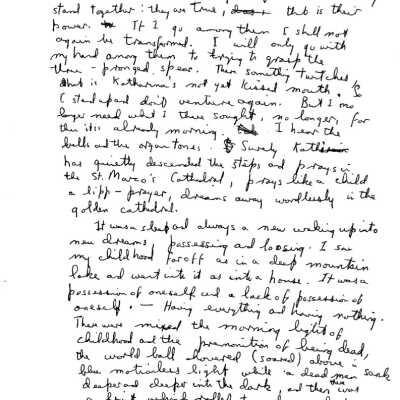 stand together: they are true, that is their
power. If I go among them I shall not
again be transformed. I will only go with
my hand among them to trying to grasp the
three-pronged spear. Then something twitches &
that is Katharina's not yet kissed mouth.
I stand up and don't venture again. But I no
longer need what I there sought, no longer, for
this it is already morning. I hear the
bells and the organ tones. Surely
has quietly descended the steps and prays in
the St. Marco's Cathedral, prays like a child
a lipp-prayer, dreams away wordlessly in the
golden cathedral.
It was a sleep and always a new waking up into
new dreams, possessing and loosing. I saw
my childhood far off as in a deep mountain
lake and went into it as into a house. It was a
possession of oneself and a lack of possession of
oneself. — Having everything and having nothing.
There were mixed the morning light of
childhood and the premonition of being dead,
the world ball hovered (soared) above in
blue motionless light while a dead man sank
deeper and deeper into the dark, and then was
a fruit which rolled